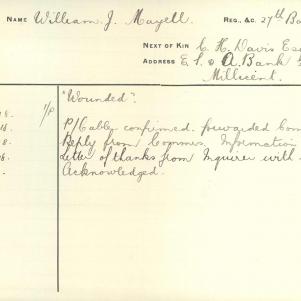 NAME William J. Mayell. REG., &C. 27th Ba
NEXT OF KIN C. H. Davis Esq
ADDRESS E. S. & A. Bank
Millicent.
"Wounded".
P/Cable confirmed. forwarded Com
Reply from Commrs. Information
Letter of thanks from Inquirer with
Acknowledged.